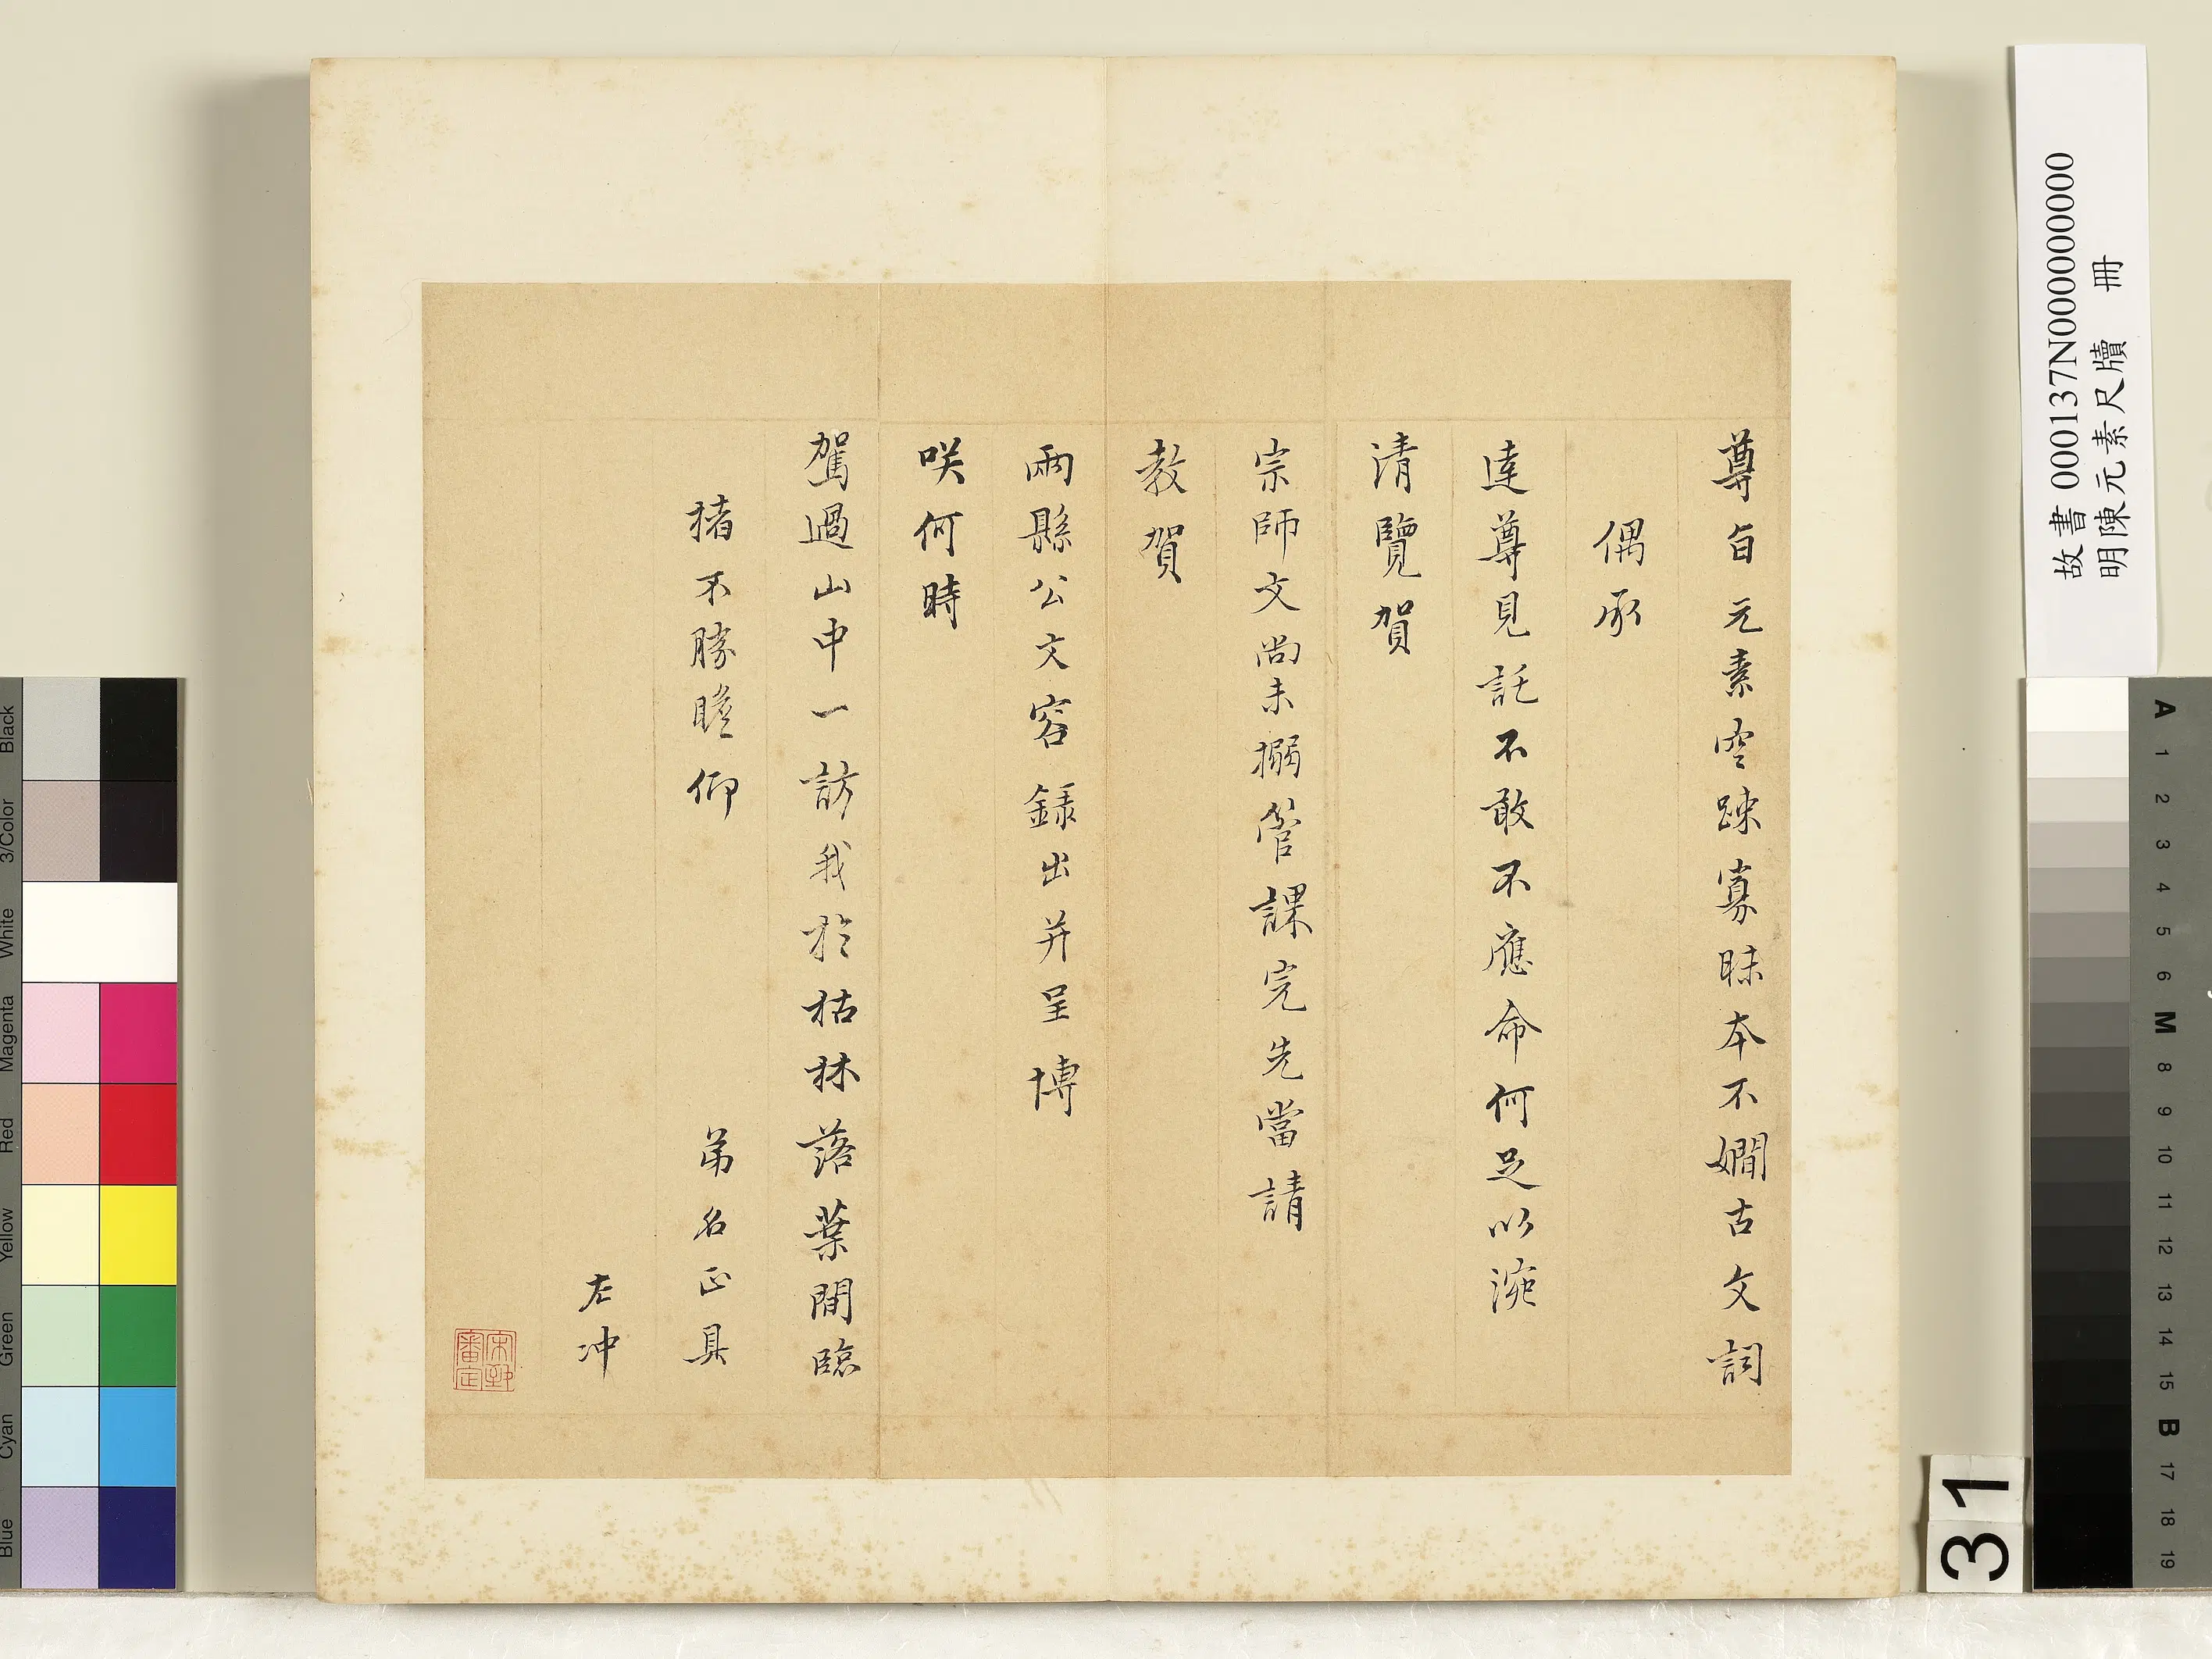 尊旨元素空疎寡昧本不嫺古文詞
偶承
達尊見託不敢不應命何足以涴
清覽賀
宗師文尚未搦管課完先當請
教賀
兩縣公文容錄出并呈博
咲何時
駕過山中一訪我於枯林落葉間臨
楮不勝瞻仰 弟名正具
左冲
故書000137N000000000
明陳元素尺牘 冊
31
Black
3/Color
White
Magenta
Red
Yellow
Green
Cyan
Blue
A 1 2 3 4 5 6 M 8 9 10 11 12 13 14 15 B 17 18 19